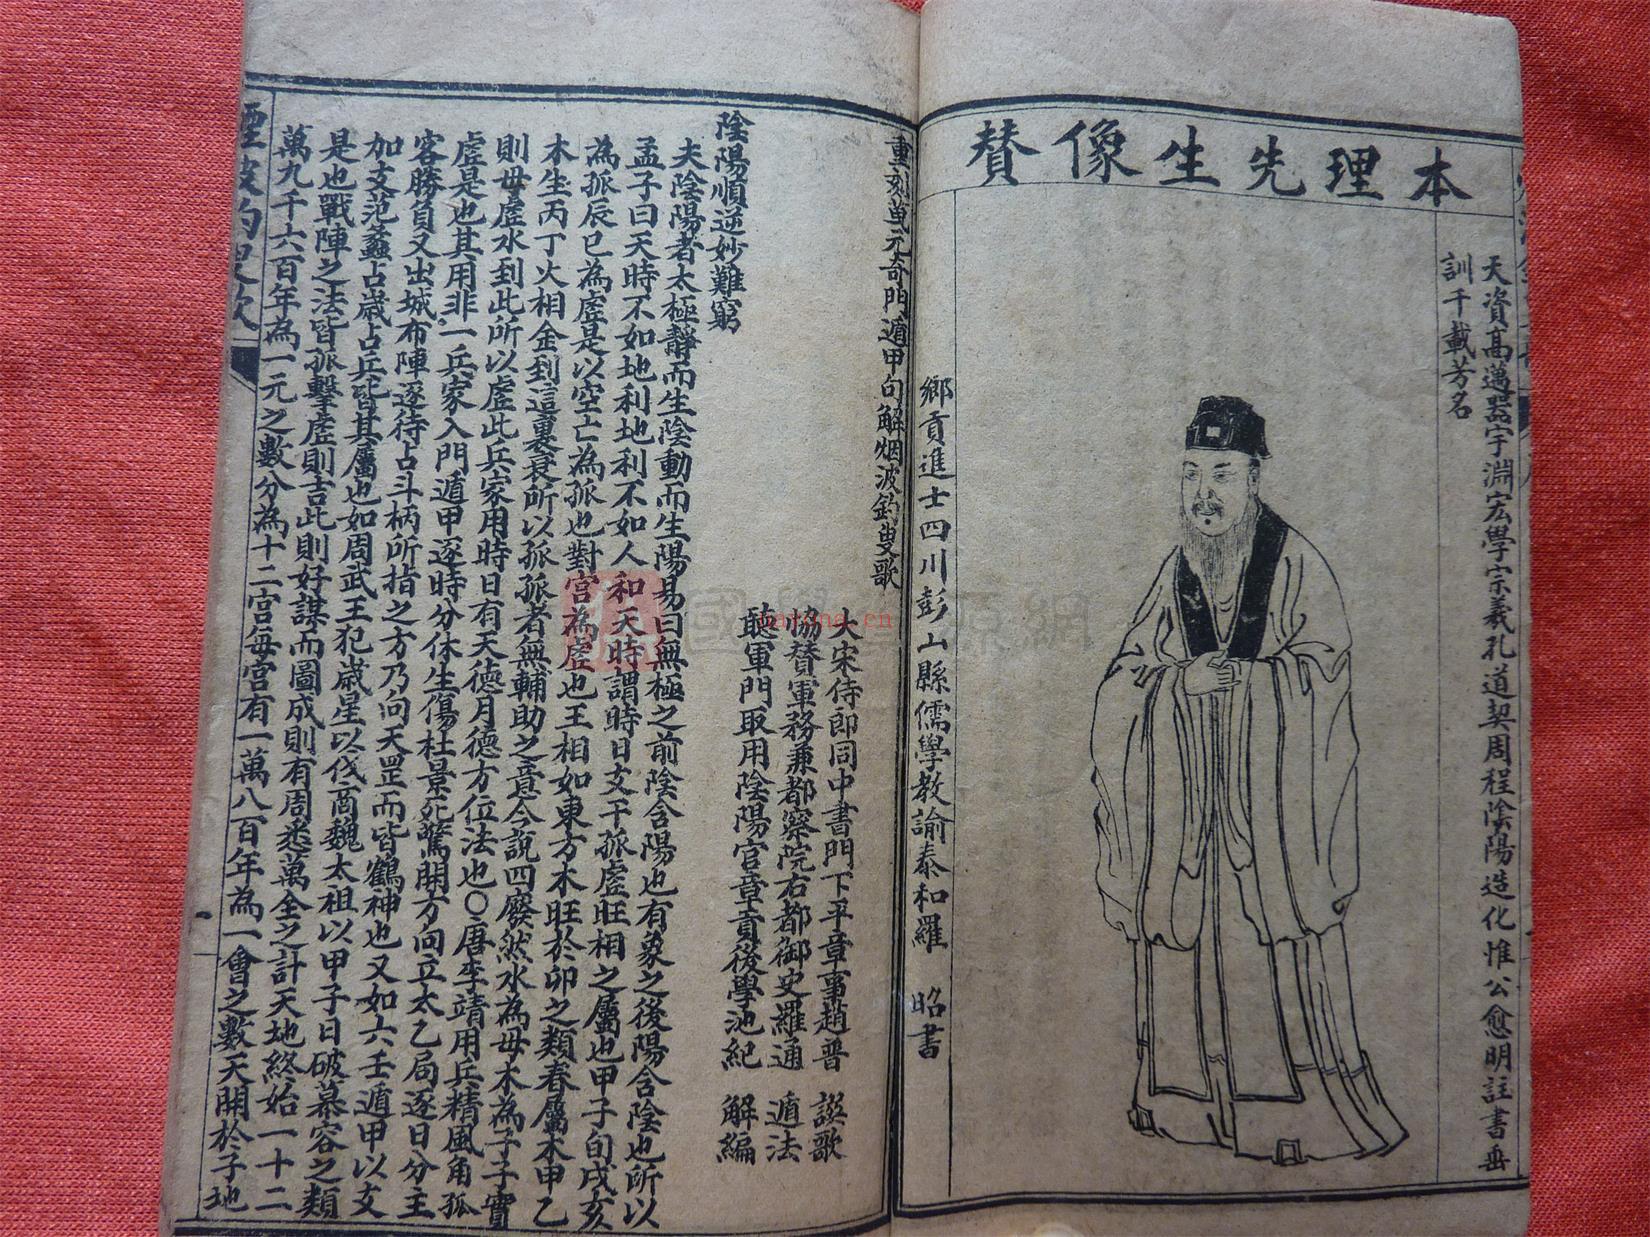 本理先生像賛
天資高邁器宇淵宏學宗義孔道契周程陰陽造化惟公愈明註書垂
訓千載芳名
鄉貢進士四川彭山縣儒學教諭泰和羅 昭書
重刻萬元奇門遁甲句解烟波釣叟歌
大宋侍郎同中書門下平章事趙普 譔歌
協賛軍務兼都察院右都御史羅通 遁法
聽軍門取用陰陽官章貢後學池紀 解編
陰陽順逆妙難窮
夫陰陽者太極靜而生陰動而生陽易曰無極之前陰含陽也有象之後陽含陰也所以
孟子曰天時不如地利地利不如人和天時謂時日支干孤虛旺相之屬也甲子旬戌亥
為孤辰巳為虛是以空亡為孤也對宮為虛也王相如東方木旺於卯之類春屬木甲乙
木生丙丁火相金到這裏衰所以孤孤者無輔助之意今說四廢然水為母木為子子實
則母虛水到此所以虛此兵家用時日有天德月德方位法也○唐李靖用兵精風角孤
虛是也其用非一兵家入門遁甲逐時分休生傷杜景死驚開方向立太乙局逐日分主
客勝負又出城布陣逐待占斗柄所指之方乃向天罡而皆鶴神也又如六壬遁甲以支
加支范蠡占歲占兵皆其屬也如周武王犯歲星以伐商魏太祖以甲子日破慕容之類
是也戰陣之法皆孤擊虛則吉此則好謀而圖成則有周悉萬全之計天地終始一十二
萬九千六百年為一元之數分為十二宮每宮有一萬八百年為一會之數天開於子地
國學 源網